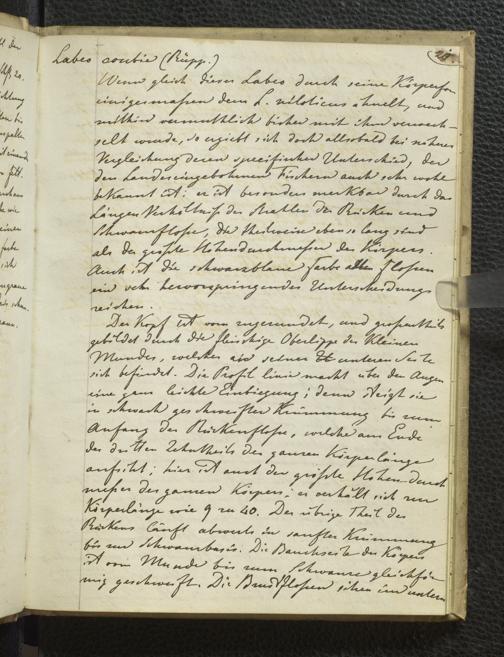 Labeo coubie (Rüpp.)
Wenn gleich dieser Labeo durch seine Körperform
einigermaßen dem L. niloticus ähnelt, und
mithin vermuthlich bisher mit ihm verwech-
selt wurde, so ergiebt sich doch allsobald bei näherer
Vergleichung deren specifischer Unterschied, der
den Landeseingebohrnen Fischern auch sehr wohl
bekannt ist; er ist besonders merkbar durch das
Längen Verhältniß der Strahlen der Rücken und
Schwanzflosse, die theilweise eben so lang sind
als der größte Höhendurchmesser des Körpers.
Auch ist die schwarzblaue Farbe aller Flossen
ein sehr hervorspringendes Unterscheidungs
zeichen.
Der Kopf ist vorn zugerundet, und großentheils
gebildet durch die fleischige Oberlippe des kleinen
Mundes, welcher an seiner unteren Seite
sich befindet. Die Profil linie macht über den Augen
eine ganz leichte Einbiegung; dann steigt sie
in schwach geschweifter Krümmung bis zum
Anfang der Rückenflosse, welche am Ende
des dritten Zehntheils der ganzen Körperlänge
ansitzt; hier ist auch der größte Höhen durch
messer des ganzen Körpers; er verhält sich zur
Körperlänge wie 9 zu 40. Der übrige Theil des
Rückens läuft abwärts in sanfter Krümmung
bis zur Schwanzbasis. Die Bauchseite des Körpers
ist vom Munde bis zum Schwanze gleichför-
mig geschweift. Die Brustflossen sitzen im untern